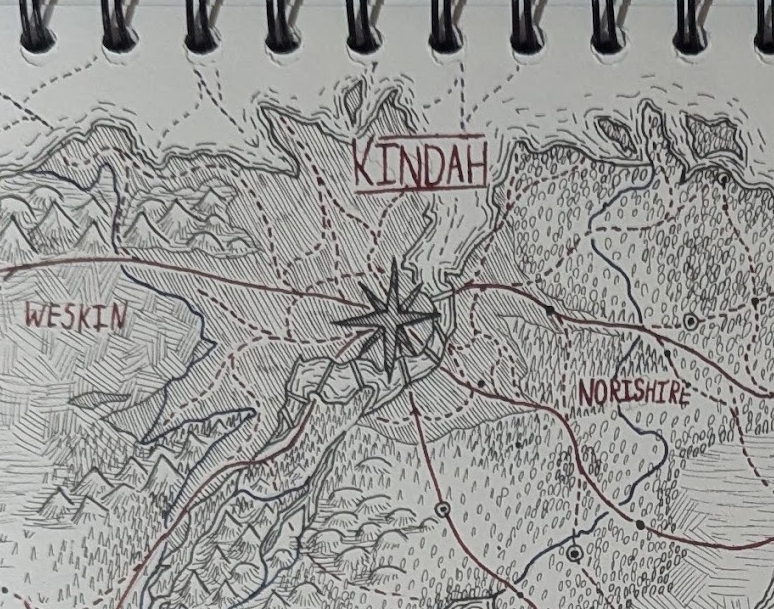 KINDAH
WESKIN
NORISHIRE